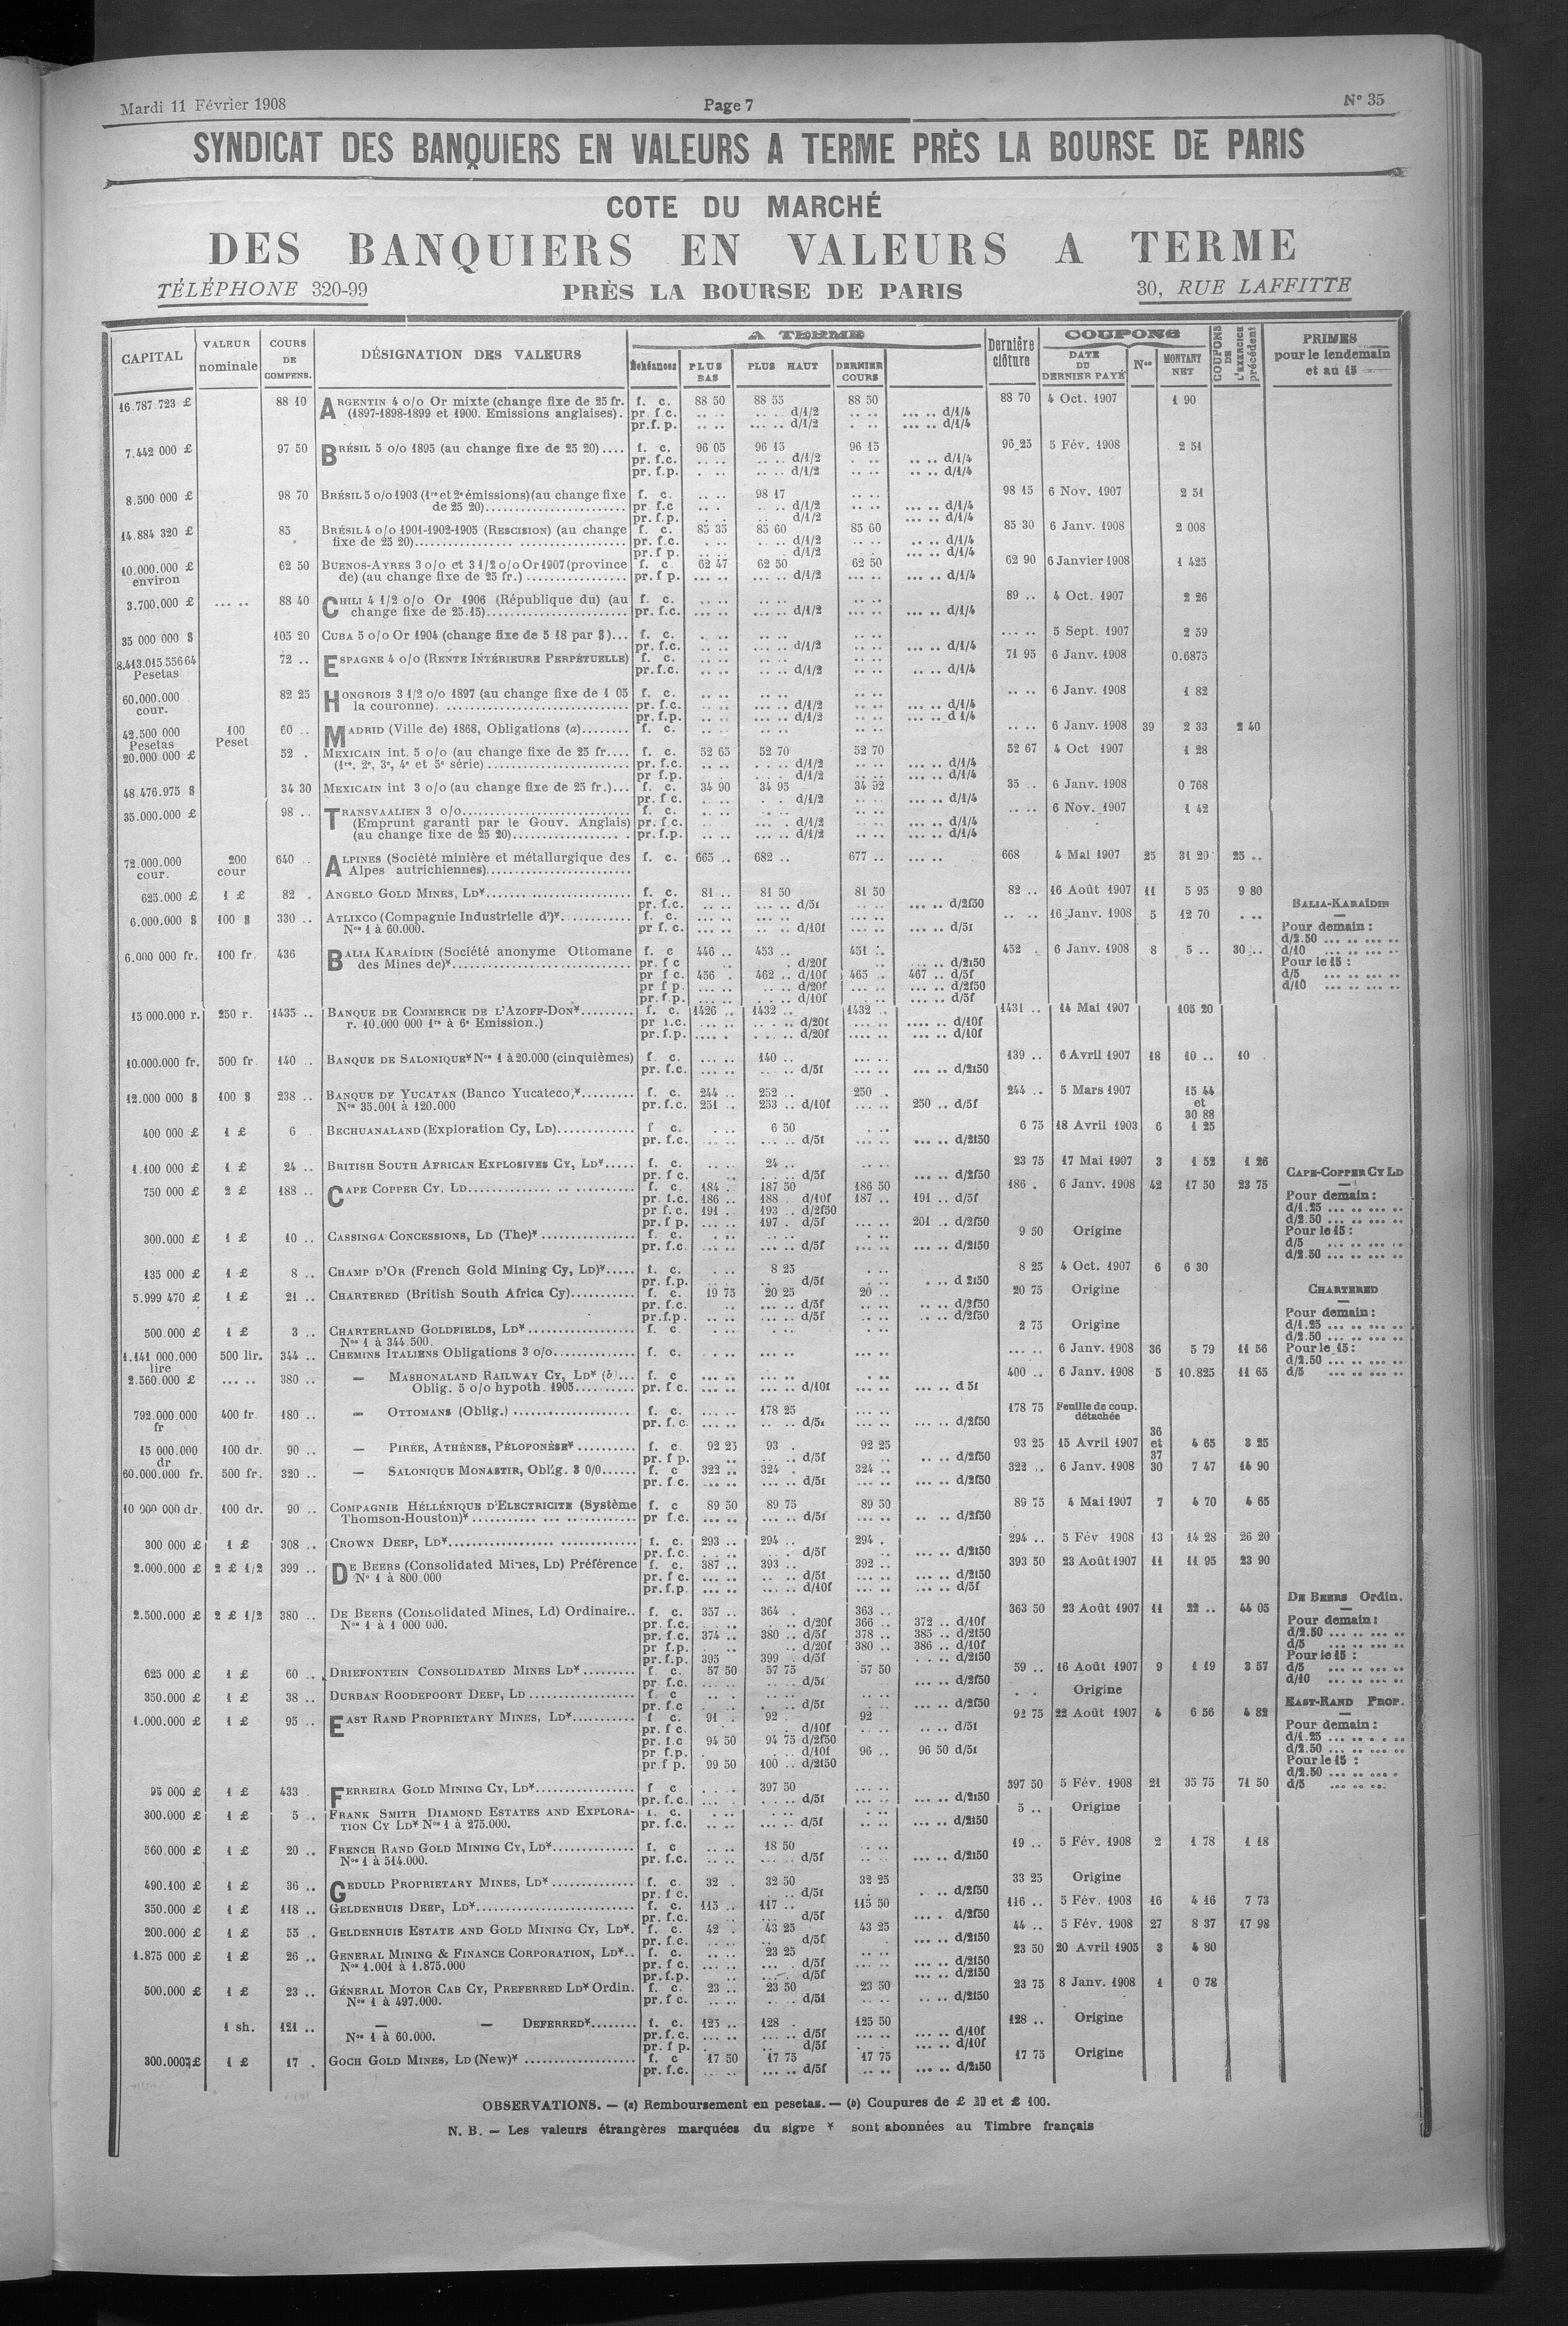 Mardi 11 Février 1908 Page 7 N° 35
SYNDICAT DES BANQUIERS EN VALEURS A TERME PRÈS LA BOURSE DE PARIS
COTE DU MARCHÉ
DES BANQUIERS EN VALEURS A TERME
TÉLÉPHONE 320-99 PRÈS LA BOURSE DE PARIS 30, RUE LAFFITTE
CAPITAL VALEUR nominale COURS DE COMPENS. DÉSIGNATION DES VALEURS A TERME Échéances PLUS BAS PLUS HAUT DERNIER COURS Dernière clôture COUPONS DATE DU DERNIER PAYÉ Nos MONTANT NET COUPONS DE L'EXERCICE précédent PRIMES pour le lendemain et au 15
16.787.723 £ 88 10 ARGENTIN 4 o/o Or mixte (change fixe de 25 fr. f. c. 88 50 88 55 88 50 88 70 4 Oct. 1907 1 90
(1897-1898-1899 et 1900. Emissions anglaises). pr f c. .. .. .. .. d/1/2 .. .. ... .. d/1/4
pr.f. p. .. .. ... .. d/1/2 ... .. d/1/4
7.442 000 £ 97 50 BRÉSIL 5 o/o 1895 (au change fixe de 25 20).... f. c. 96 05 96 15 96 15 96 25 5 Fév. 1908 2 51
pr. f.c. .. .. .. .. d/1/2 .. .. d/1/4
pr. f.p. .. .. d/1/2 .. .. d/1/4
8.500 000 £ 98 70 BRÉSIL 5 o/o 1903 (1re et 2e émissions) (au change fixe f. c. .. .. 98 17 .. .. 98 15 6 Nov. 1907 2 51
de 25 20) pr f.c .. .. d/1/2 ... .. d/1/4
pr. f.p. d/1/2 ... .. d/1/4
14.884 320 £ 85 BRÉSIL 4 o/o 1901-1902-1905 (RESCISION) (au change f. c. 85 35 85 60 85 60 85 30 6 Janv. 1908 2 008
fixe de 25 20) pr. f.c. d/1/2 .. .. d/1/4
pr.f p. d/1/2 ... .. d/1/4
10.000.000 £ 62 50 BUENOS-AYRES 3 o/o et 3 1/2 o/o Or 1907 (province f. c. 62 47 62 50 62 50 62 90 6 Janvier 1908 1 425
environ de) (au change fixe de 25 fr.) pr. f p. ... .. ... .. d/1/2 ... .. d/1/4
3.700.000 £ ... .. 88 40 CHILI 4 1/2 o/o Or 1906 (République du) (au f. c. .. .. 89 .. 4 Oct. 1907 2 26
change fixe de 25.15) pr. f.c. ... .. ... .. d/1/2 ... .. d/1/4
35 000 000 $ 105 20 CUBA 5 o/o Or 1904 (change fixe de 5 18 par $)... f. c. ... .. 5 Sept. 1907 2 59
pr. f.c. ... .. d/1/2 ... .. d/1/4
8.413.015.556 64 72 .. ESPAGNE 4 o/o (RENTE INTÉRIEURE PERPÉTUELLE) f. c. 71 95 6 Janv. 1908 0.6875
Pesetas pr.f.c. .. .. ... .. d/1/2 .. .. d/1/4
60.000.000 82 25 HONGROIS 3 1/2 o/o 1897 (au change fixe de 1 05 f. c. .. .. 6 Janv. 1908 1 82
cour. la couronne). pr. f.c. .. .. d/1/2 ... .. d/1/4
pr. f.p. .. .. d/1/2 ... .. d 1/4
42.500 000 100 60 .. MADRID (Ville de) 1868, Obligations (a)........ f. c. .. .. 6 Janv. 1908 39 2 33 2 40
Pesetas Peset
20.000 000 £ 52 . MEXICAIN int. 5 o/o (au change fixe de 25 fr.... f. c. 52 65 52 70 52 70 52 67 4 Oct 1907 1 28
(1re, 2e, 3e, 4e et 5e série) pr. f.c. d/1/2 ... .. d/1/4
pr f.p. d/1/2 ... .. d/1/4
48.476.975 $ 34 30 MEXICAIN int 3 o/o (au change fixe de 25 fr.)... f. c. 34 90 34 95 34 92 35 .. 6 Janv. 1908 0 768
pr. f c. d/1/2 ... .. d/1/4
35.000.000 £ 98 .. TRANSVAALIEN 3 o/o f. c. .. .. 6 Nov. 1907 1 42
(Emprunt garanti par le Gouv. Anglais) pr. f.c. d/1/2 ... .. d/1/4
(au change fixe de 25 20) pr. f.p. d/1/2 ... .. d/1/4
72.000.000 200 640 .. ALPINES (Société minière et métallurgique des f. c. 665 .. 682 .. 677 .. ... .. 668 4 Mai 1907 25 31 20 25 ..
cour. cour Alpes autrichiennes)
625.000 £ 1 £ 82 . ANGELO GOLD MINES, LD* f. c. 81 .. 81 50 81 50 82 .. 16 Août 1907 11 5 95 9 80
pr. f.c. ... .. d/5f ... .. d/2f50 BALIA-KARAÏDIN
6.000.000 $ 100 $ 330 .. ATLIXCO (Compagnie Industrielle d')* f. c. .. .. 16 Janv. 1908 5 12 70 . ..
Nos 1 à 60.000. pr f. c. ... .. .. .. d/10f ... .. ... .. d/5f Pour demain :
6.000 000 fr. 100 fr. 436 BALIA KARAÏDIN (Société anonyme Ottomane f. c 446 .. 453 .. 451 .. 452 . 6 Janv. 1908 8 5 .. 30 .. d/2.50 ... .. ... ..
des Mines de)* pr. f c d/20f ... .. d/2f50 d/10 ... .. ... ..
pr f c. 456 . 462 .. d/10f 465 .. 467 .. d/5f Pour le 15 :
pr f p. ... .. .. .. d/20f ... .. ... .. d/2f50 d/5 ... .. ... ..
pr. f.p. d/10f ... .. d/5f d/10 ... .. ... ..
15 000.000 r. 250 r. 1435 .. BANQUE DE COMMERCE DE L'AZOFF-DON* f. c. 1426 .. 1432 .. 1432 .. 1431 .. 14 Mai 1907 105 20
r. 10.000 000 1re à 6e Emission.) pr f.c. d/20f .... .. d/10f
pr. f.p. d/20f ... .. d/10f
10.000.000 fr. 500 fr. 140 .. BANQUE DE SALONIQUE* Nos 1 à 20.000 (cinquièmes) f. c. ... .. 140 .. ... .. 139 .. 6 Avril 1907 18 10 .. 10 .
pr. f.c. d/5f ... .. d/2f50
12.000 000 $ 100 $ 238 .. BANQUE DE YUCATAN (Banco Yucateco,* f. c. 244 .. 252 .. 250 .. 244 .. 5 Mars 1907 15 44
Nos 35.001 à 120.000 pr. f.c. 251 .. 253 .. d/10f ... .. 250 .. d/5f et
30 88
400 000 £ 1 £ 6 . BECHUANALAND (Exploration Cy, LD) f c. 6 50 6 75 18 Avril 1903 6 1 25
pr. f.c. ... .. d/5f ... .. d/2f50
1.100 000 £ 1 £ 24 .. BRITISH SOUTH AFRICAN EXPLOSIVES CY, LD* f. c. 24 .. 23 75 17 Mai 1907 3 1 52 1 26
pr. f c. d/5f ... .. d/2f50 CAPE-COPPER CY LD
750 000 £ 2 £ 188 .. CAPE COPPER CY. LD f. c. 184 . 187 50 186 50 186 . 6 Janv. 1908 42 17 50 23 75
pr. f.c. 186 .. 188 . d/10f 187 .. 191 .. d/5f Pour demain :
pr. f c. 191 .. 193 .. d/2f50 d/1.25 ... .. ... ..
pr. f p. ... .. 197 . d/5f ... .. 201 .. d/2f50 d/2.50 ... .. ... ..
300.000 £ 1 £ 10 .. CASSINGA CONCESSIONS, LD (The)* f. c. 9 50 Origine Pour le 15 :
pr. f.c. ... .. d/5f ... .. d/2f50 d/5 ... .. ... ..
d/2.50 ... .. ... ..
135 000 £ 1 £ 8 .. CHAMP D'OR (French Gold Mining Cy, LD)* f. c. 8 25 8 25 4 Oct. 1907 6 6 30
pr. f.p. d/5f . .. d 2f50
5.999 470 £ 1 £ 21 .. CHARTERED (British South Africa Cy) f. c. 19 75 20 25 20 .. 20 75 Origine CHARTERED
pr. f.c. ... .. d/5f .. .. d/2f50
pr.f.p. ... .. d/5f .. .. d/2f50 Pour demain :
500.000 £ 1 £ 3 .. CHARTERLAND GOLDFIELDS, LD* f. c 2 75 Origine d/1.25 ... .. ... ..
Nos 1 à 344.500. d/2.50 ... .. ... ..
1.141 000.000 500 lir. 344 .. CHEMINS ITALIENS Obligations 3 o/o f. c. ... .. 6 Janv. 1908 36 5 79 11 56 Pour le 15 :
lire d/2.50 ... .. ... ..
2.560.000 £ ... .. 380 .. — MASHONALAND RAILWAY CY, LD* (b)... f. c 400 .. 6 Janv. 1908 5 10.825 11 65 d/5 ... .. ... ..
Oblig. 5 o/o hypoth. 1905 pr. f c. ... .. ... .. d/10f ... .. d 5f
792.000.000 400 fr. 180 .. — OTTOMANS (Oblig.) f. c. 178 25 178 75 Feuille de coup.
fr pr. f. c. d/5f ... .. d/2f50 détachée
15 000.000 100 dr. 90 .. — PIRÉE, ATHÈNES, PÉLOPONÈSE* f. c. 92 25 93 . 92 25 93 25 15 Avril 1907 36 et 37 4 65 3 25
dr pr. f p. d/5f .. .. d/2f50
60.000.000 fr. 500 fr. 320 .. — SALONIQUE MONASTIR, Oblig. 3 0/0 f. c 322 .. 324 . 324 .. 322 .. 6 Janv. 1908 30 7 47 14 90
pr. f.c. ... .. ... .. d/5f ... .. d/2f50
10 000 000 dr. 100 dr. 90 .. COMPAGNIE HÉLLÉNIQUE D'ELECTRICITE (Système f. c 89 50 89 75 89 50 89 75 4 Mai 1907 7 4 70 4 65
Thomson-Houston)* pr f.c. ... .. ... .. d/5f ... .. d/2f50
300 000 £ 1 £ 308 .. CROWN DEEP, LD* f. c. 293 .. 294 .. 294 . 294 .. 5 Fév 1908 13 14 28 26 20
pr. f.c. d/5f ... .. d/2f50
2.000.000 £ 2 £ 1/2 399 .. DE BEERS (Consolidated Mines, LD) Préférence f. c. 387 .. 393 .. 392 .. 393 50 23 Août 1907 11 11 95 23 90
N° 1 à 800.000 pr. f c. ... .. d/5f ... .. d/2f50
pr. f.p. ... .. d/10f ... .. d/5f
2.500.000 £ 2 £ 1/2 380 .. DE BEERS (Consolidated Mines, Ld) Ordinaire.. f. c. 357 .. 364 . 363 .. 363 50 23 Août 1907 11 22 .. 44 05 DE BEERS Ordin.
Nos 1 à 1 000 000. pr. f.c. d/20f 366 .. 372 .. d/10f Pour demain :
pr. f.c. 374 .. 380 .. d/5f 378 .. 385 .. d/2f50 d/2.50 ... .. ... ..
pr f.p. d/20f 380 .. 386 .. d/10f d/5 ... .. ... ..
pr. f.p. 395 399 . d/5f d/2f50 Pour le 15 :
625 000 £ 1 £ 60 .. DRIEFONTEIN CONSOLIDATED MINES LD* f. c. 57 50 57 75 57 50 59 .. 16 Août 1907 9 1 19 3 57 d/5 ... .. ... ..
pr. f.c. d/5f ... .. d/2f50 d/10 ... .. ... ..
350.000 £ 1 £ 38 .. DURBAN ROODEPOORT DEEP, LD f. c Origine
pr. f.c d/5f ... .. d/2f50 EAST-RAND PROP.
1.000.000 £ 1 £ 95 .. EAST RAND PROPRIETARY MINES, LD* f c. 91 . 92 . 92 92 75 22 Août 1907 4 6 56 4 82
pr. f c. d/10f .. .. d/5f Pour demain :
pr. f.c 94 50 94 75 d/2f50 d/1.25 ... .. ... ..
pr f.p. d/10f 96 .. 96 50 d/5f d/2.50 ... .. ... ..
pr.f p. 99 50 100 .. d/2f50 Pour le 15 :
d/2.50 ... .. ... .
95 000 £ 1 £ 433 . FERREIRA GOLD MINING CY, LD* f c 397 50 397 50 5 Fév. 1908 21 35 75 71 50 d/5 ... .. ..
pr. f.c. d/5f ... .. d/2f50
300.000 £ 1 £ 5 .. FRANK SMITH DIAMOND ESTATES AND EXPLORA- f. c. 5 .. Origine
TION CY LD* Nos 1 à 275.000. pr. f.c. d/5f ... .. d/2f50
560.000 £ 1 £ 20 .. FRENCH RAND GOLD MINING CY, LD* f. c 18 50 19 .. 5 Fév. 1908 2 1 78 1 18
Nos 1 à 514.000. pr. f.c. d/5f ... .. d/2f50
490.100 £ 1 £ 36 .. GEDULD PROPRIETARY MINES, LD* f. c. 32 . 32 50 32 25 33 25 Origine
pr. f c. d/5f . .. d/2f50
350.000 £ 1 £ 118 .. GELDENHUIS DEEP, LD* f. c. 115 .. 117 .. 115 50 116 .. 5 Fév. 1908 16 4 16 7 73
pr. f.c. d/5f d/2f50
200.000 £ 1 £ 55 .. GELDENHUIS ESTATE AND GOLD MINING CY, LD*. f. c. 42 . 43 25 43 25 44 .. 5 Fév. 1908 27 8 37 17 98
pr. f.c. d/5f ... .. d/2f50
1.875 000 £ 1 £ 26 .. GENERAL MINING & FINANCE CORPORATION, LD*.. f. c. 23 25 23 50 20 Avril 1905 3 4 80
Nos 1.001 à 1.875.000 pr. f c. d/5f ... .. d/2f50
pr. f.p. d/5f ... .. d/2f50
500.000 £ 1 £ 23 .. GÉNERAL MOTOR CAB CY, PREFERRED LD* Ordin. f. c. 23 .. 23 50 23 50 23 75 8 Janv. 1908 1 0 78
Nos 1 à 497.000. pr. f c. d/5f .. .. d/2f50
1 sh. 121 .. — — DEFERRED* f. c. 125 .. 128 . 125 50 128 .. Origine
Nos 1 à 60.000. pr. f. c. ... .. d/5f ... .. d/10f
pr. f p. d/5f ... .. d/10f
300.000 £ 1 £ 17 . GOCH GOLD MINES, LD (New)* f. c 17 50 17 75 17 75 17 75 Origine
pr. f.c. ... .. d/5f ... .. d/2f50
OBSERVATIONS. — (a) Remboursement en pesetas. — (b) Coupures de £ 20 et £ 100.
N. B. — Les valeurs étrangères marquées du signe * sont abonnées au Timbre français